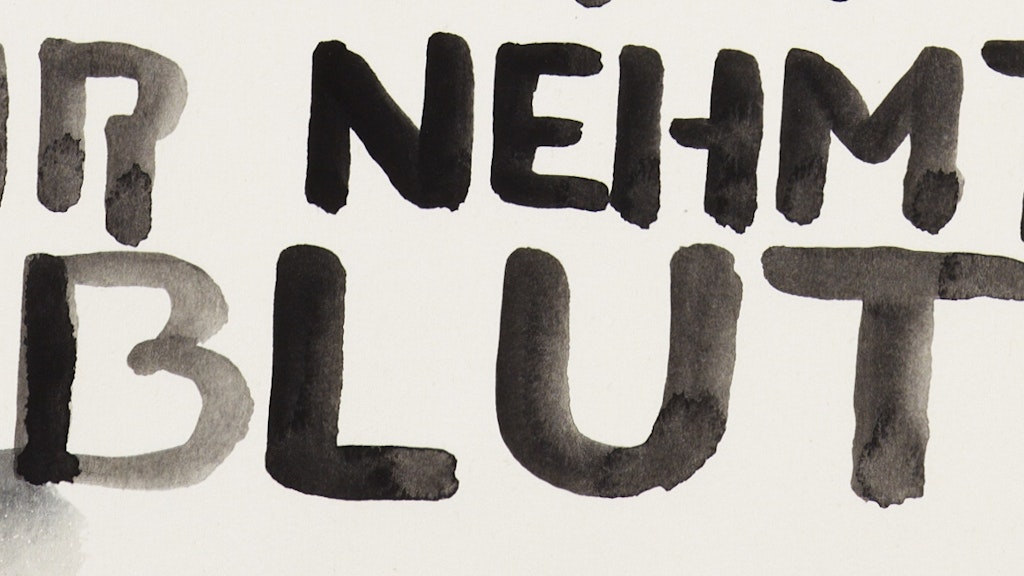 NEHMT
BLUT